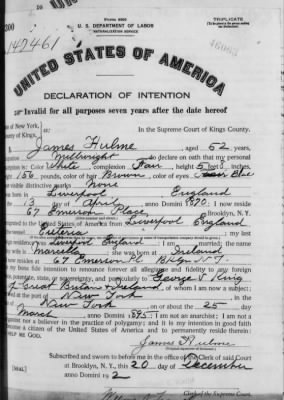 TRIPLICATE
U. S. DEPARTMENT OF LABOR
NATURALIZATION SERVICE
147461
UNITED STATES OF AMERICA
DECLARATION OF INTENTION
Invalid for all purposes seven years after the date hereof
of New York,
of Kings,
In the Supreme Court of Kings County.
I, James Hulme, aged 52 years,
occupation Millwright, do declare on oath that my personal
is: Color White, complexion Fair, height 5 feet inches,
156 pounds, color of hair Brown, color of eyes Blue
visible distinctive marks None
born in Liverpool England
the 13 day of April, anno Domini 1870; I now reside
67 Emerson Place Brooklyn, N. Y.
to the United States of America from Liverpool England
; my last
residence was Liverpool England; I am married; the name
is ; she was born at Ireland
67 Emerson Pl Bklyn N.Y.
my bona fide intention to renounce forever all allegiance and fidelity to any foreign
potentate, state, or sovereignty, and particularly to George V King
of Great Britain & Ireland, of whom I am now a subject;
at the port of New York, in the
New York, on or about the 25 day
March, anno Domini 1895; I am not an anarchist; I am not a
nor a believer in the practice of polygamy; and it is my intention in good faith
become a citizen of the United States of America and to permanently reside therein:
HELP ME GOD.
James Hulme
Subscribed and sworn to before me in the office of the Clerk of said Court
at Brooklyn, N. Y., this 20 day of December
anno Domini 192
[SEAL]
Clerk of the Supreme Court.